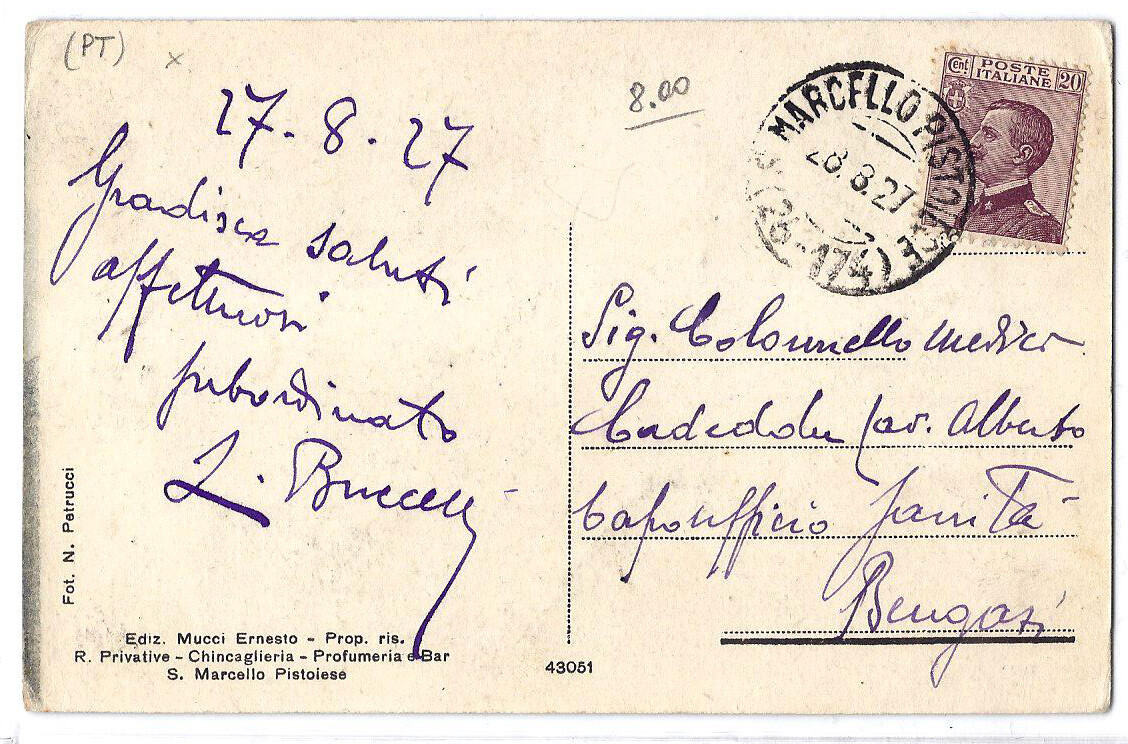 (PT)
x
8.00
27.8.27
Gradisca saluti
affettuosi
subordinato
Cent POSTE ITALIANE 20
S. MARCELLO PISTOIESE
28.8.27
(26-174)
Sig. Colonnello medico
Cav. Alberto
Capoufficio Sanità
Bengasi
Fot. N. Petrucci
Ediz. Mucci Ernesto - Prop. ris.
R. Privative - Chincaglieria - Profumeria e Bar
S. Marcello Pistoiese
43051